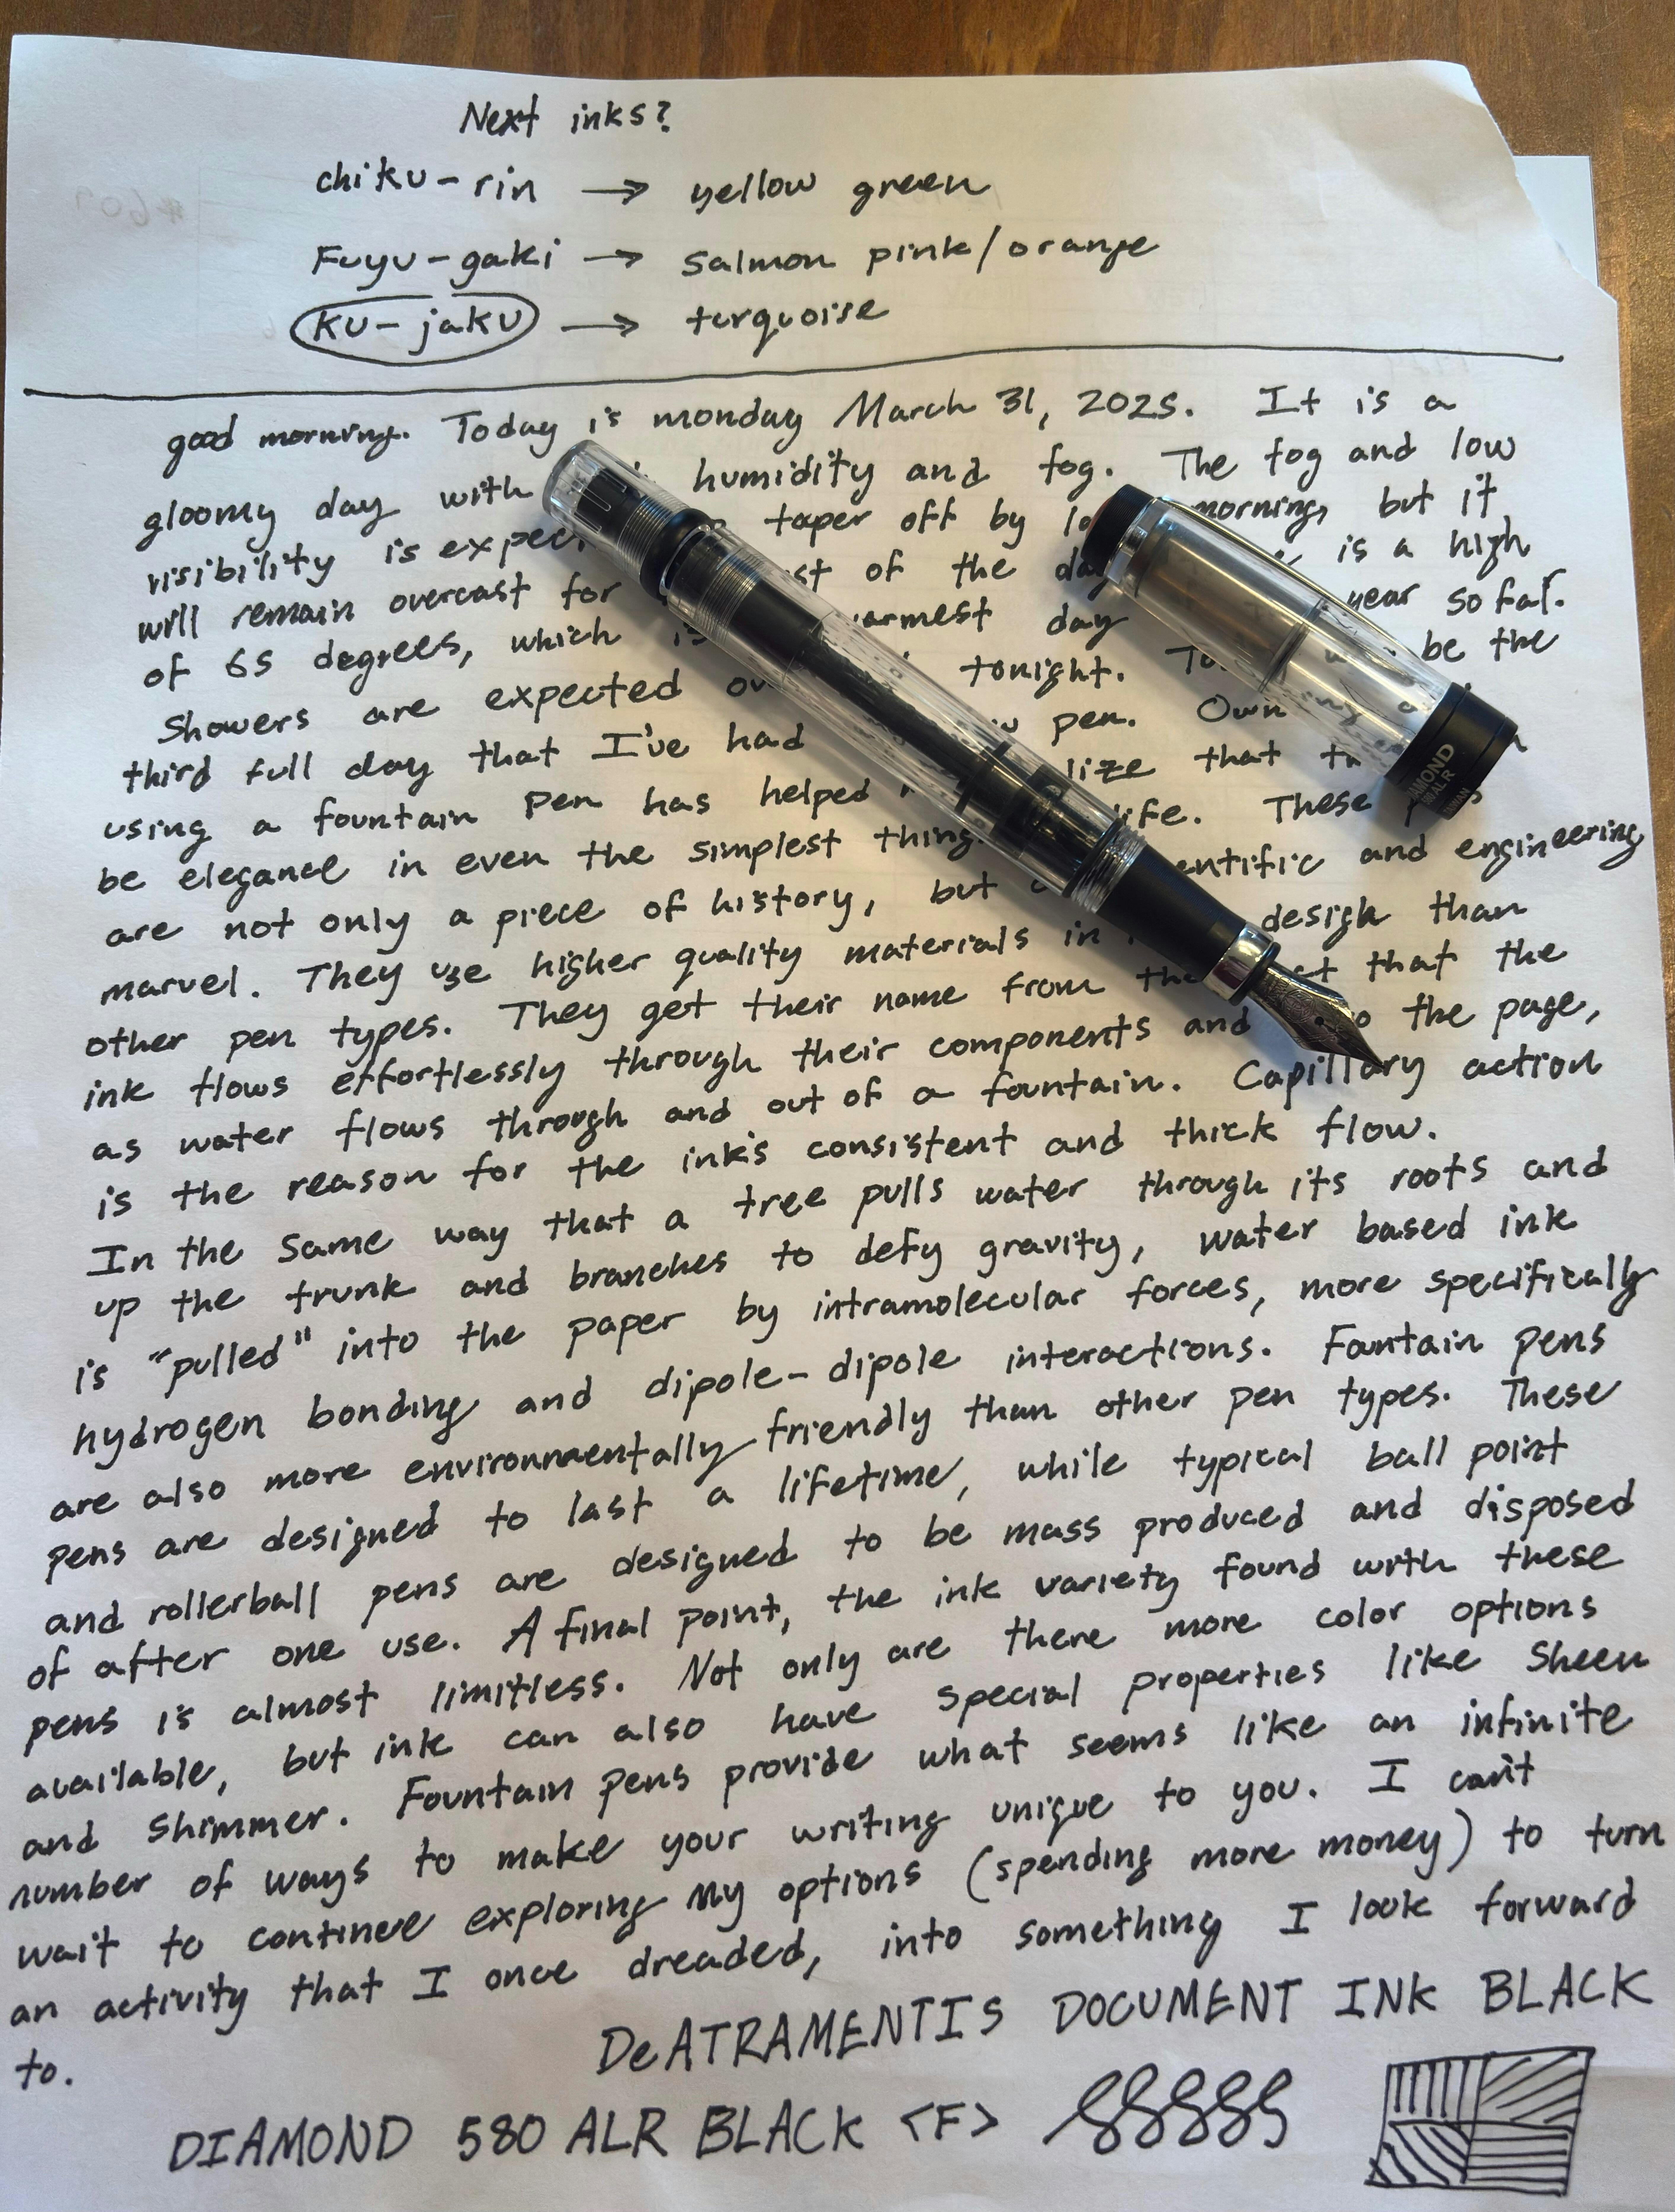 Next inks?
chiku-rin → yellow green
Fuyu-gaki → salmon pink/orange
Ku-jaku → turquoise
good morning. Today is monday March 31, 2025. It is a
gloomy day with humidity and fog. The fog and low
visibility is taper off by morning, but it
will remain overcast for of the is a high
of 65 degrees, which is day year so far.
Showers are expected tonight. be the
third full day that I've had pen.
using a fountain pen has helped that
be elegance in even the simplest These
are not only a piece of history, but and engineering
marvel. They use higher quality materials in design than
other pen types. They get their name from that the
ink flows effortlessly through their components and the page,
as water flows through and out of a fountain. Capillary action
is the reason for the ink's consistent and thick flow.
In the same way that a tree pulls water through its roots and
up the trunk and branches to defy gravity, water based ink
is "pulled" into the paper by intramolecular forces, more specifically
hydrogen bonding and dipole-dipole interactions. Fountain pens
are also more environmentally friendly than other pen types. These
pens are designed to last a lifetime, while typical ball point
and rollerball pens are designed to be mass produced and disposed
of after one use. A final point, the ink variety found with these
pens is almost limitless. Not only are there more color options
available, but ink can also have special properties like sheen
and shimmer. Fountain pens provide what seems like an infinite
number of ways to make your writing unique to you. I can't
wait to continue exploring my options (spending more money) to turn
an activity that I once dreaded, into something I look forward
to.
DeATRAMENTIS DOCUMENT INK BLACK
DIAMOND 580 ALR BLACK <F>